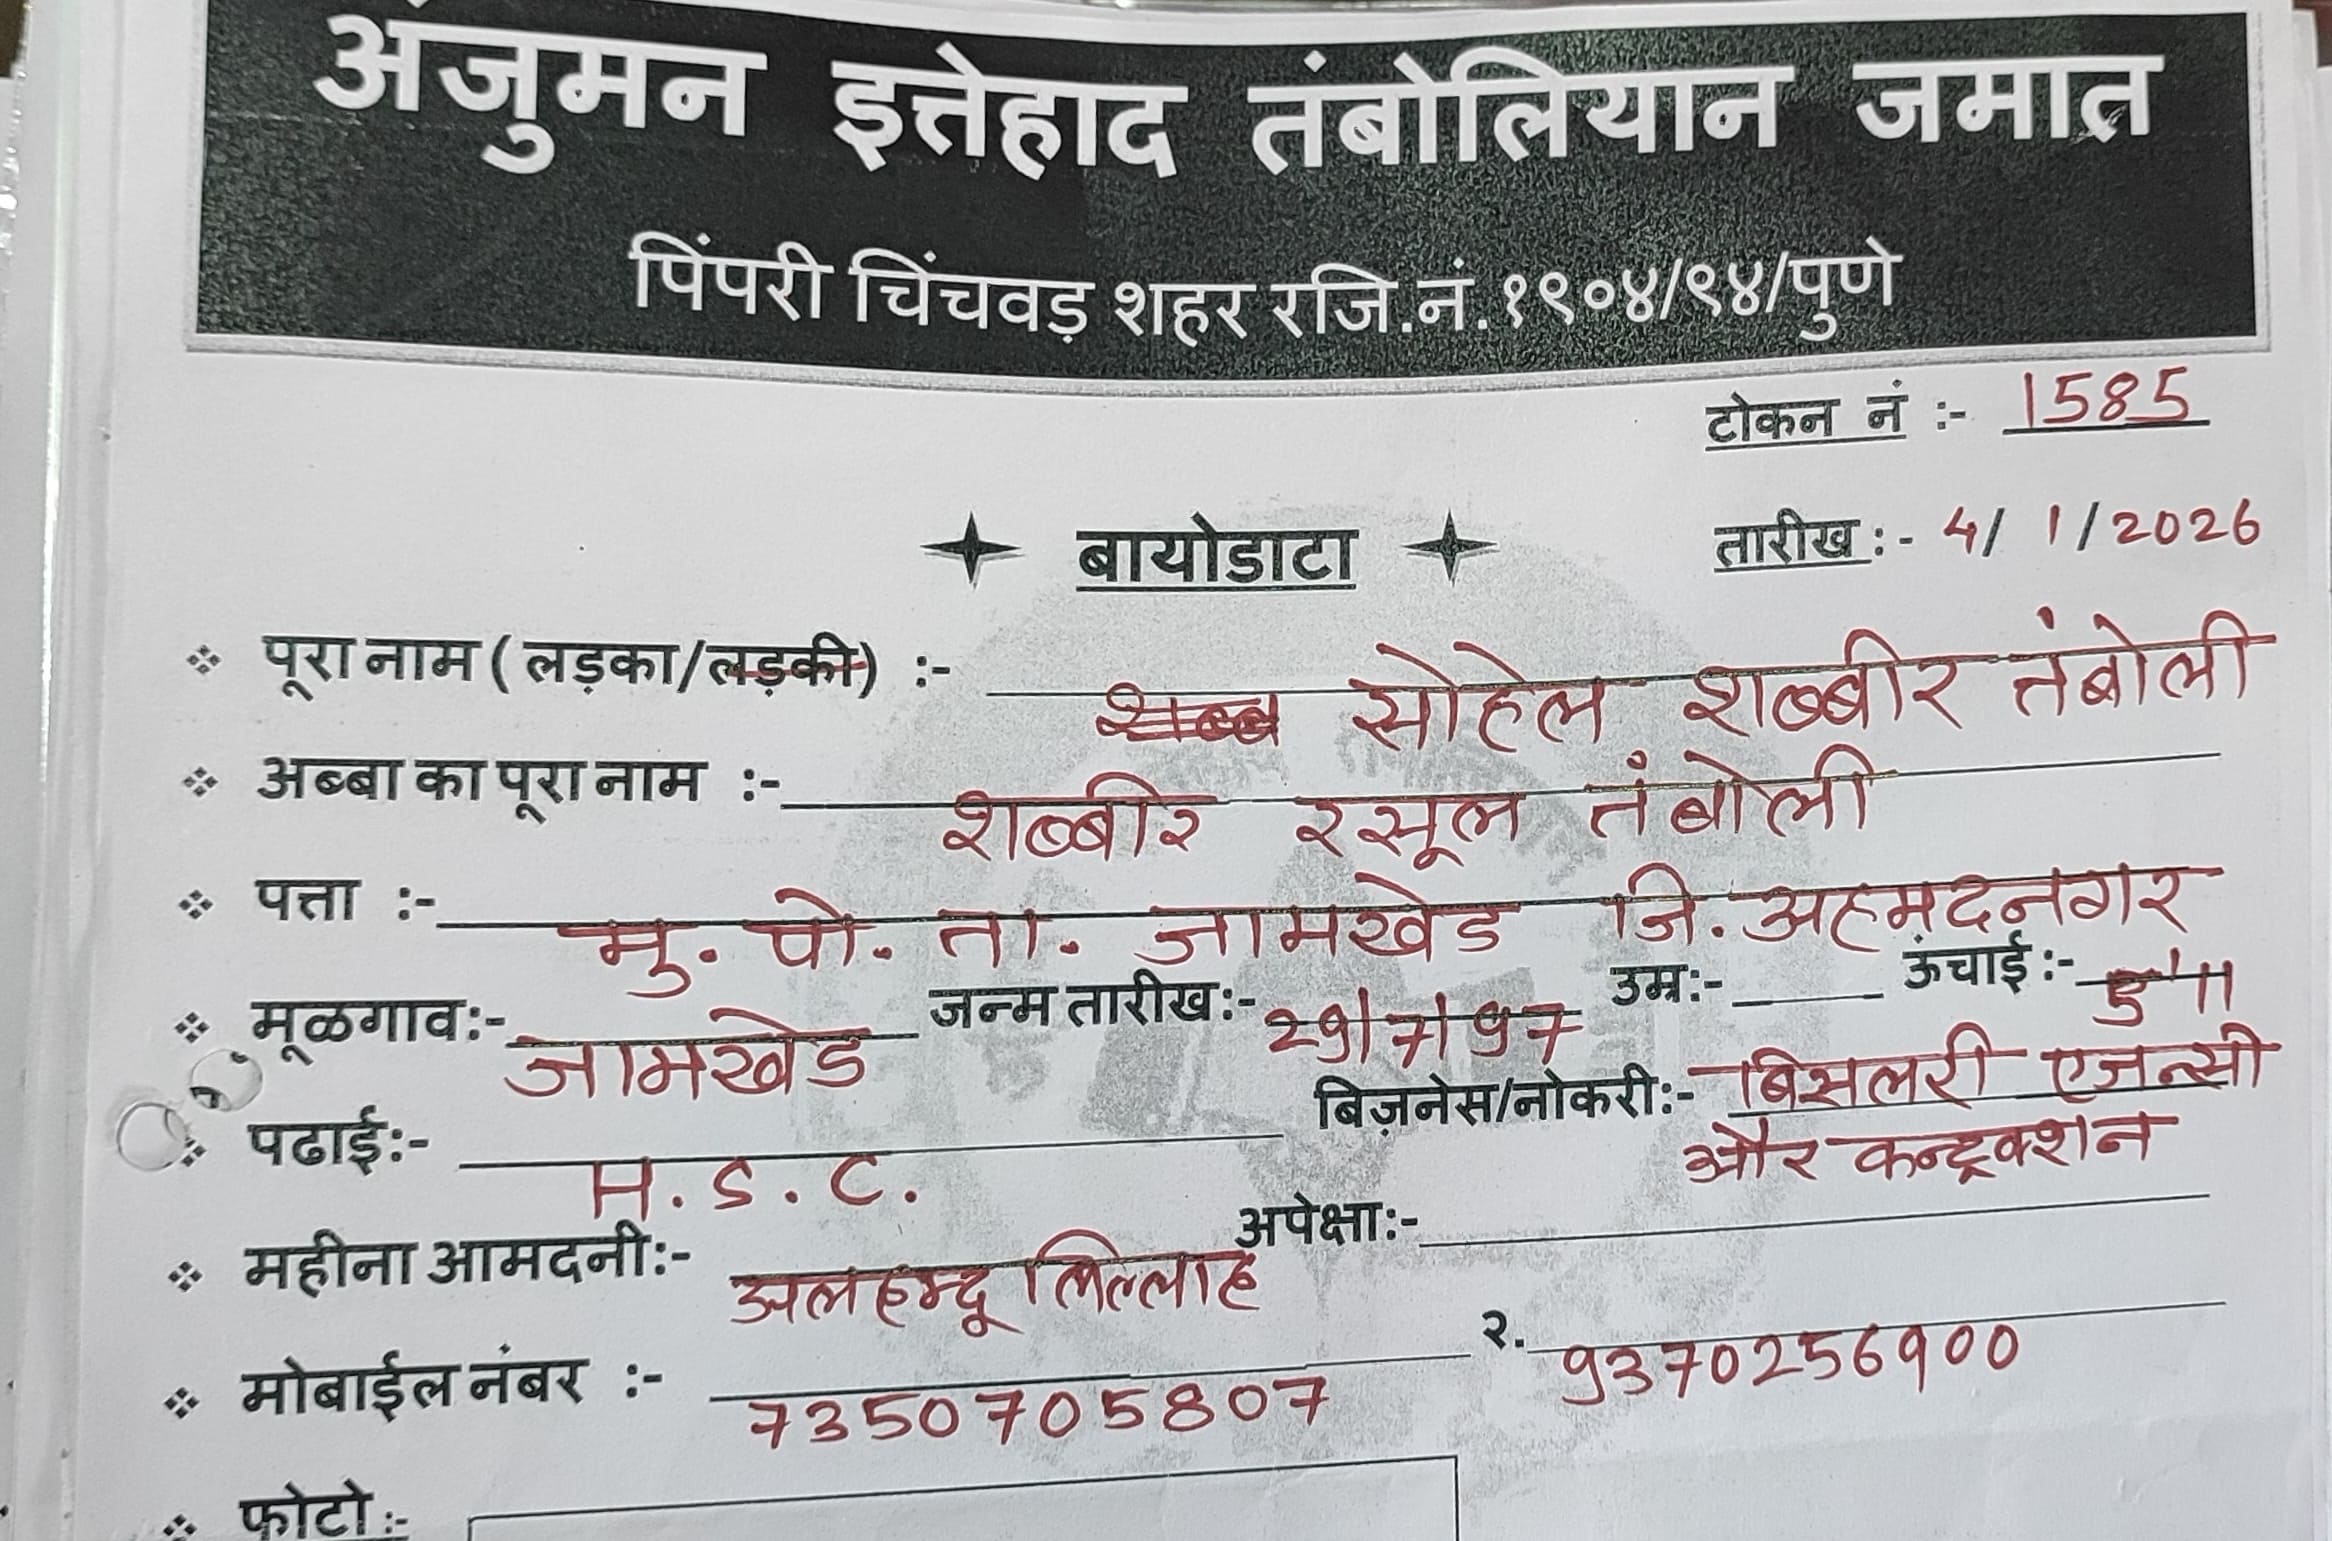 अंजुमन इत्तेहाद तंबोलियान जमात
पिंपरी चिंचवड़ शहर रजि.नं.१९०४/९४/पुणे
टोकन नं :- 1585
तारीख :- 4/ 1/2026
बायोडाटा
पूरा नाम ( लड़का/लड़की) :- सोहेल शब्बीर तंबोली
अब्बा का पूरा नाम :- शब्बीर रसूल तंबोली
पत्ता :- मु. पो. ता. जामखेड जि. अहमदनगर
मूळगाव:- जामखेड जन्म तारीख:- 29/7/97 उम्र:- ऊंचाई :- 5'11
पढाई:- H.S.C. बिज़नेस/नोकरी:- बिसलरी एजन्सी
और कन्ट्रक्शन
महीना आमदनी:- अलहम्दू लिल्लाह अपेक्षा:-
मोबाईल नंबर :- 7350705807 २. 9370256900
फोटो :-